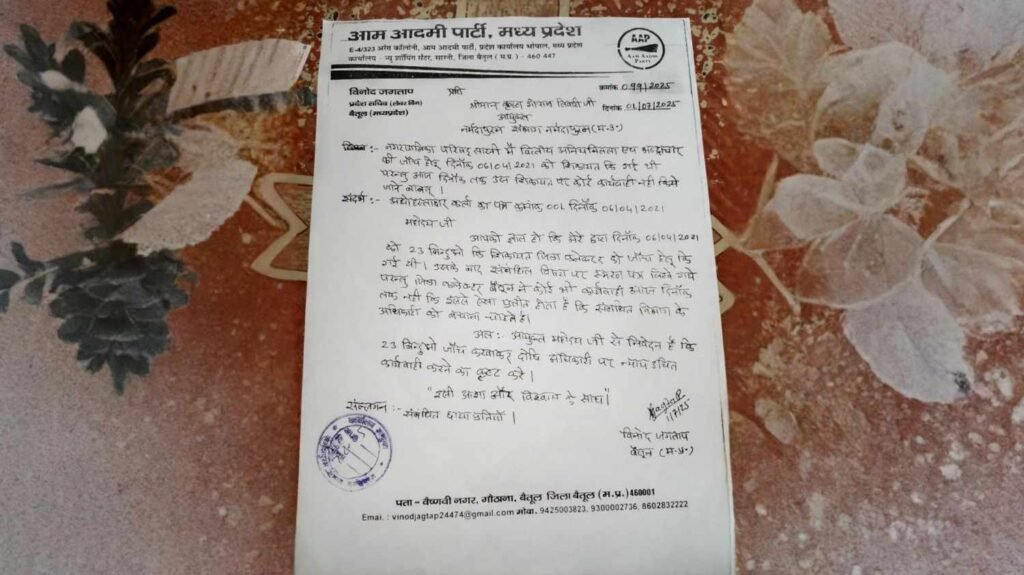 आम आदमी पार्टी, मध्य प्रदेश
E-4/323 अरेरा कॉलोनी, आम आदमी पार्टी, प्रदेश कार्यालय भोपाल, मध्य प्रदेश
कार्यालय - न्यू शॉपिंग सेंटर, सारनी, जिला बैतूल (म.प्र.) - 460 447
AAP
AAM AADMI
PARTY
विनोद जगताप
प्रदेश सचिव (लेबर विंग)
बैतूल (मध्यप्रदेश)
क्रमांक 099/2025
दिनांक 01/07/2025
प्रति
श्रीमान कृष्ण गोपाल तिवारी जी
आयुक्त
नर्मदापुरम संभाग नर्मदापुरम (म.प्र.)
विषय :- नगरपालिका परिषद सारनी में वित्तीय अनियमितता एवं भ्रष्टाचार
की जाँच हेतु दिनाँक 06/04/2021 को शिकायत कि गई थी
परन्तु आज दिनाँक तक उस शिकायत पर कोई कार्यवाही नहीं किये
जाने बावत् ।
संदर्भ :- अधोहस्ताक्षर कर्ता का पत्र क्रमांक 006 दिनाँक 06/04/2021
महोदय जी
आपको ज्ञात हो कि मेरे द्वारा दिनाँक 06/04/2021
को 23 बिन्दुओ कि शिकायत जिला कलेक्टर को जाँच हेतु कि
गई थी। उसके बाद संबंधित विषय पर स्मरण पत्र लिखे गये
परन्तु जिला कलेक्टर बैतूल ने कोई भी कार्यवाही आज दिनाँक
तक नहीं कि इससे ऐसा प्रतीत होता है कि संबंधित विभाग के
अधिकारी को बचाना चाहते है।
अतः- आयुक्त महोदय जी से निवेदन है कि
23 बिन्दुओ जाँच करवाकर दोषि अधिकारी पर न्याय उचित
कार्यवाही करने का कष्ट करे।
"इसी आशा और विश्वास के साथ"
संलग्न :- संबंधित छाया प्रतियाँ ।
Jagtap
1/7/25
विनोद जगताप
बैतूल (म.प्र.)
पता - वैष्णवी नगर, गौठाना, बैतूल जिला बैतूल (म.प्र.) 460001
Emai. : vinodjagtap24474@gmail.com मोबा. 9425003823, 9300002736, 8602832222